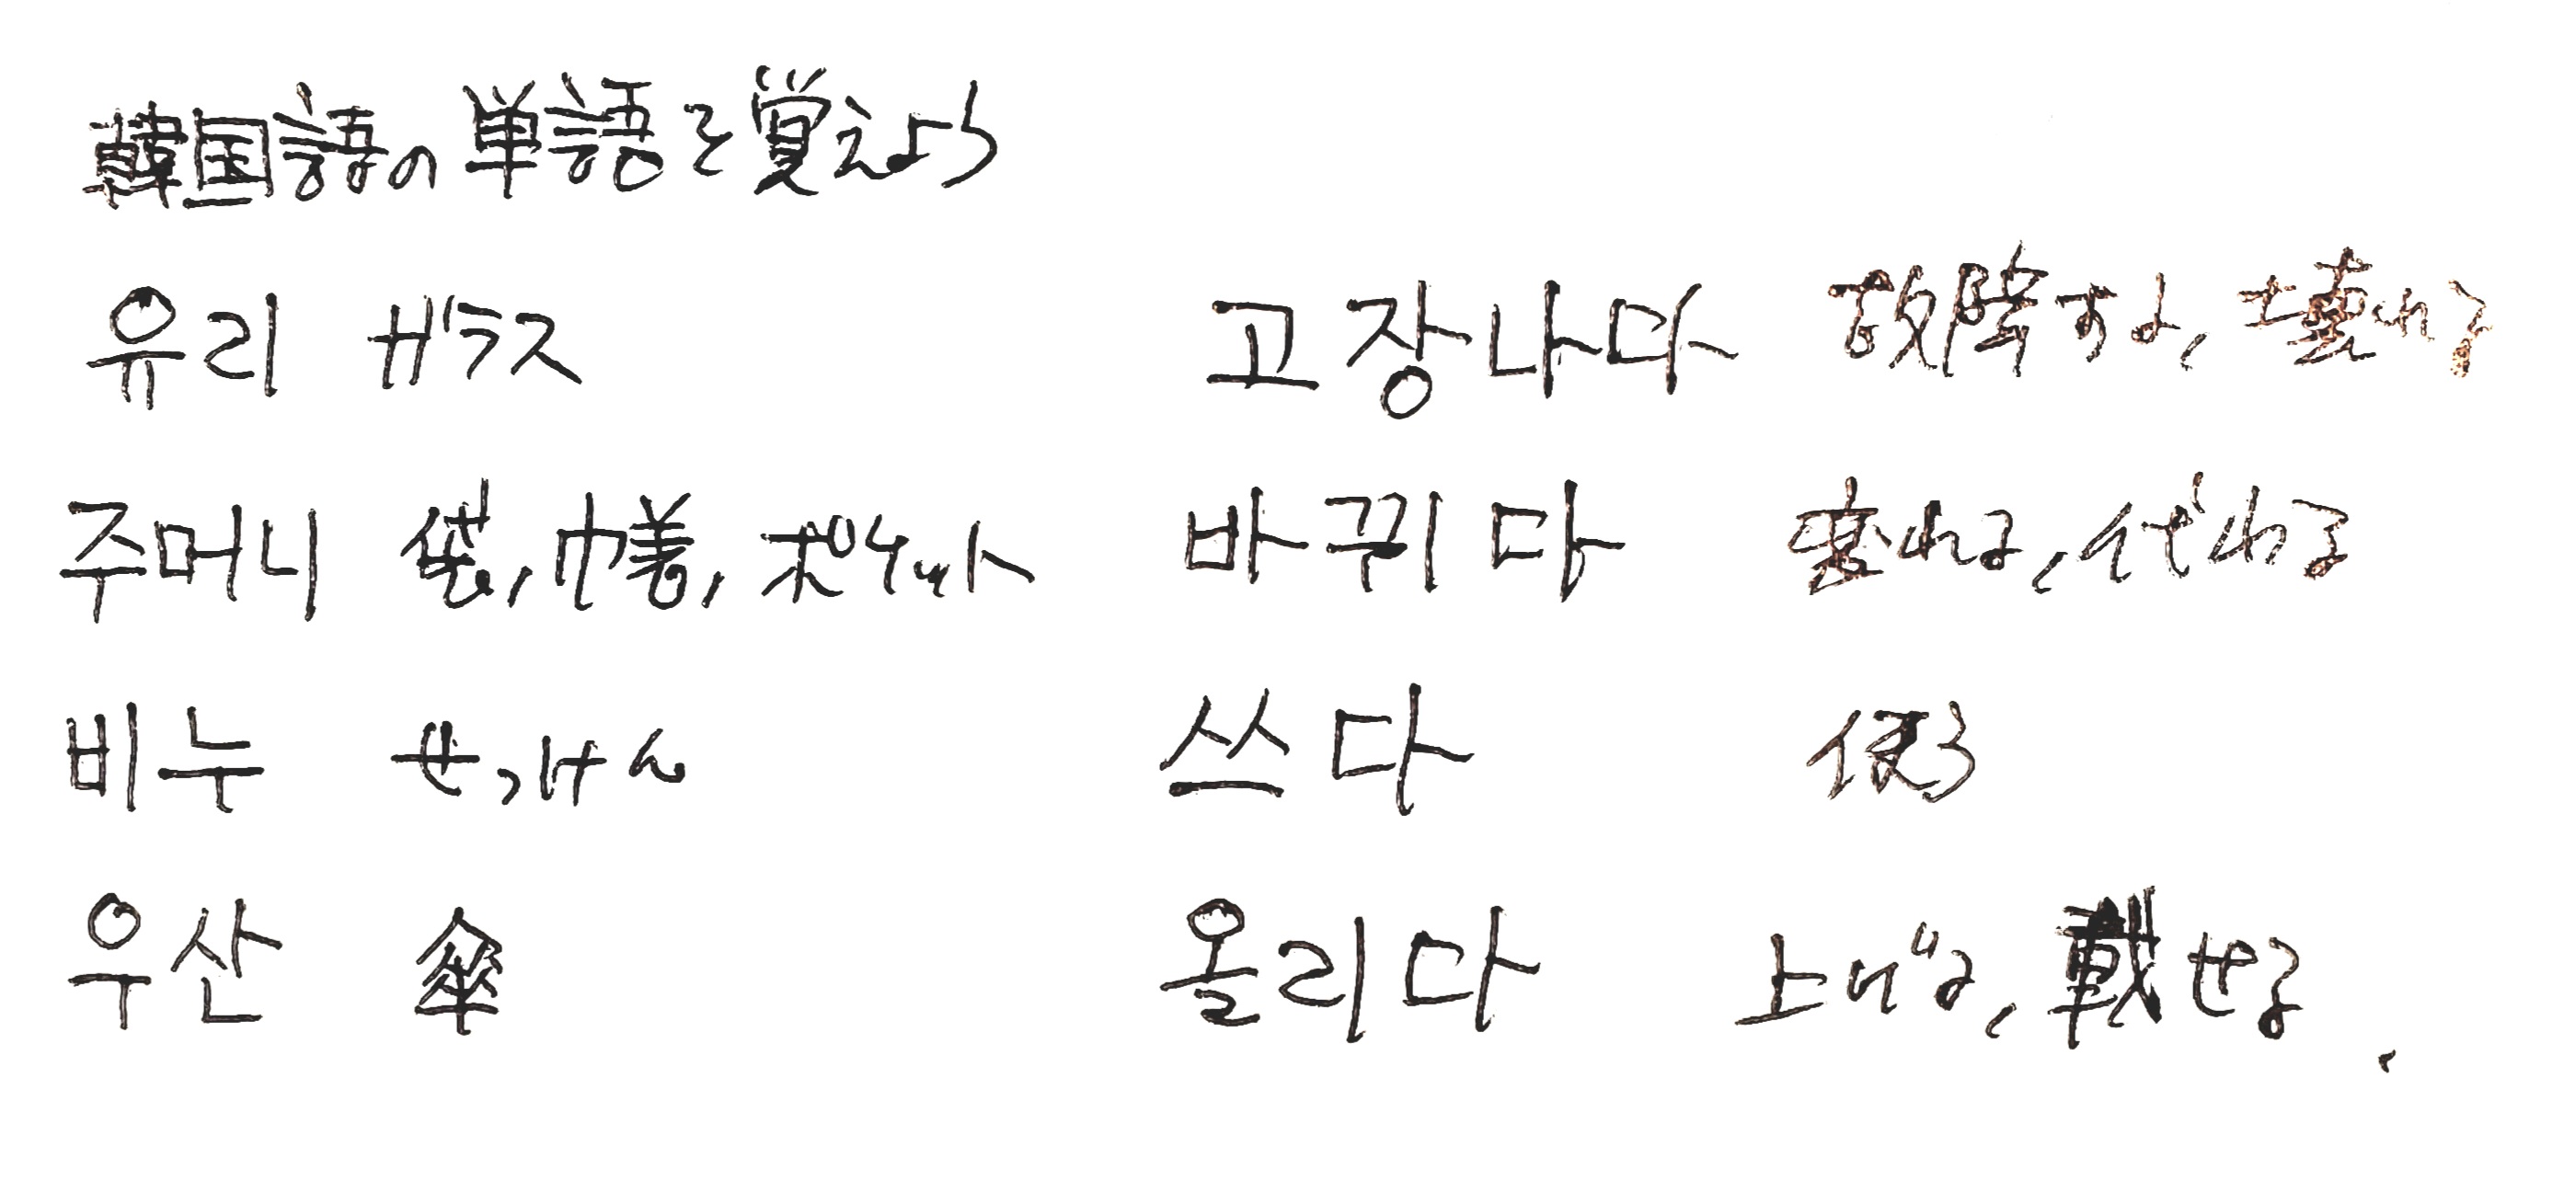 韓国語の単語を覚えよう
유리 ガラス
주머니 袋, 巾着, ポケット
비누 せっけん
우산 傘
고장나다 故障する, 壊れる
바뀌다 変わる, 代わる
쓰다 使う
올리다 上げる, 載せる